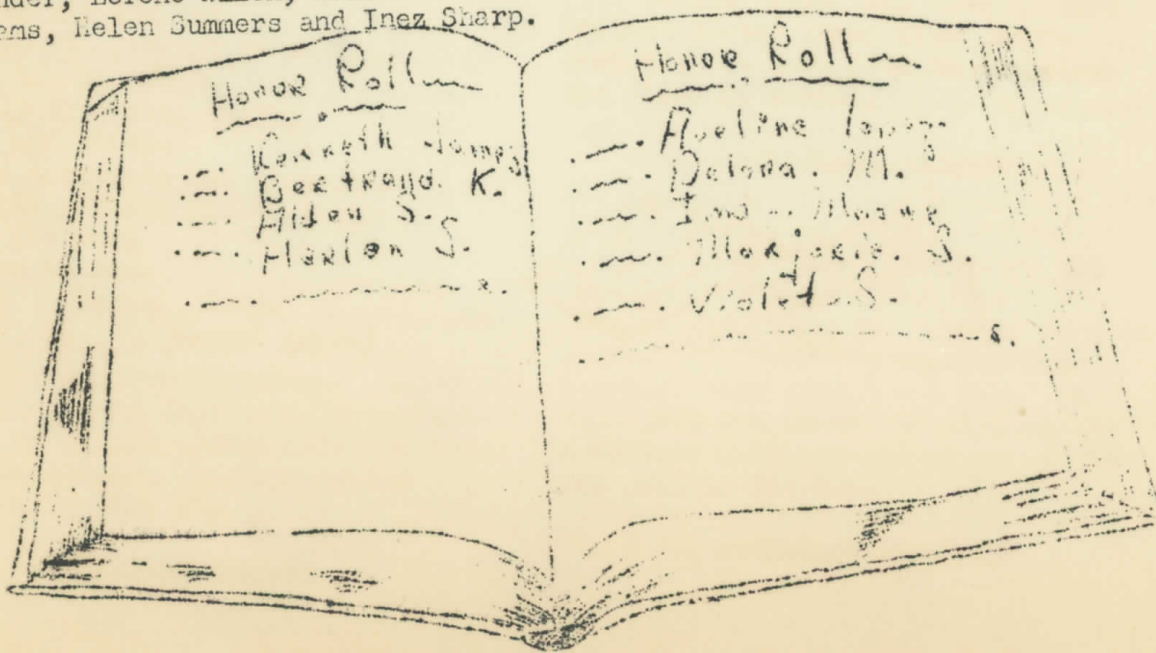 Helen Summers and Inez Sharp.
Honor Roll
Kenneth James
Bertrand. K.
Alton S.
Harlon S.
Honor Roll
Delora. M.
Marjorie. S.
Violet S.